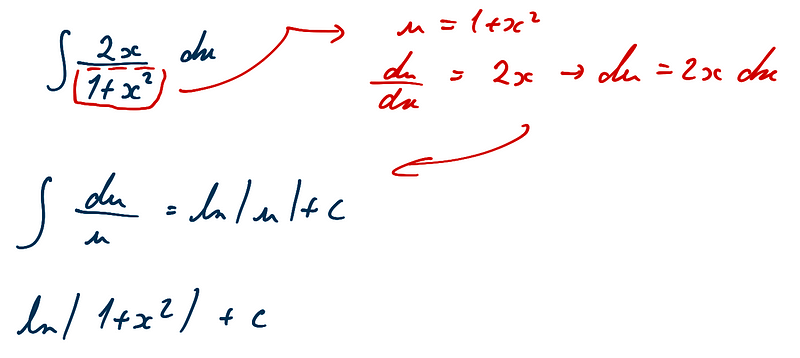 ∫ 2x/(1+x²) dx
u = 1+x²
du/dx = 2x → du = 2x dx
∫ du/u = ln|u|+c
ln|1+x²|+c